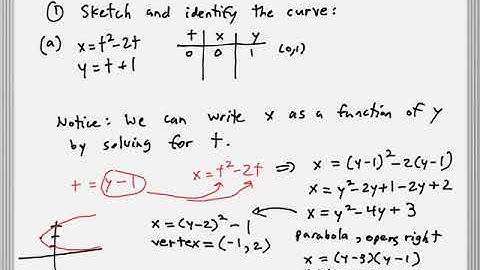 ① Sketch and identify the curve:
(a) x=t²-2t
y=t+1
t x y
0 0 1 (0,1)
Notice: We can write x as a function of y
by solving for t.
t=y-1 x=t²-2t ⇒ x=(y-1)²-2(y-1)
x=y²-2y+1-2y+2
x=y²-4y+3
x=(y-2)²-1
vertex=(-1,2)
parabola, opens right
x=(y-3)(y-1)